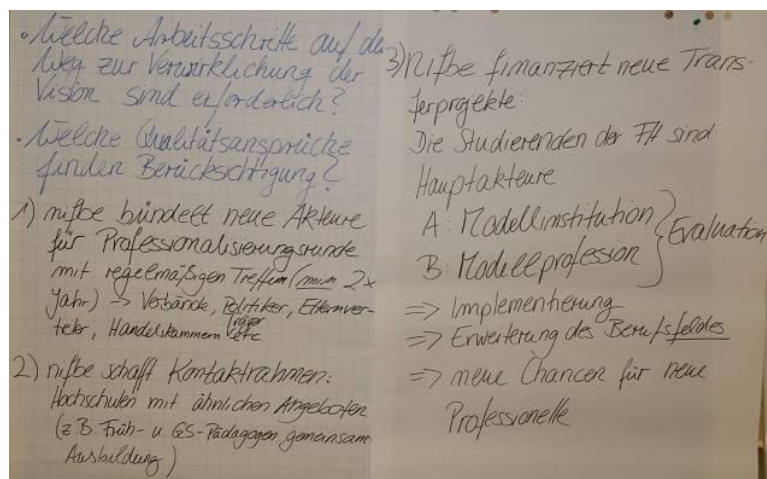 • Welche Arbeitsschritte auf dem
Weg zur Verwirklichung der
Vision sind erforderlich?
• Welche Qualitätsansprüche
finden Berücksichtigung?
1) nifbe bündelt neue Akteure
für Professionalisierungsrunde
mit regelmäßigen Treffen (min 2x
Jahr) → Verbände, Politiker, Elternver-
teter, Handelskammern, Träger etc
2) nifbe schafft Kontaktrahmen:
Hochschulen mit ähnlichen Angeboten
(z.B. Früh- u. GS-Pädagogen gemeinsam
Ausbildung)
3) Nifbe finanziert neue Trans-
ferprojekte:
Die Studierenden der FH sind
Hauptakteure
A: Modellinstitution } Evaluation
B: Modellprofession
=> Implementierung
=> Erweiterung des Berufsfeldes
=> neue Chancen für neue
Professionelle